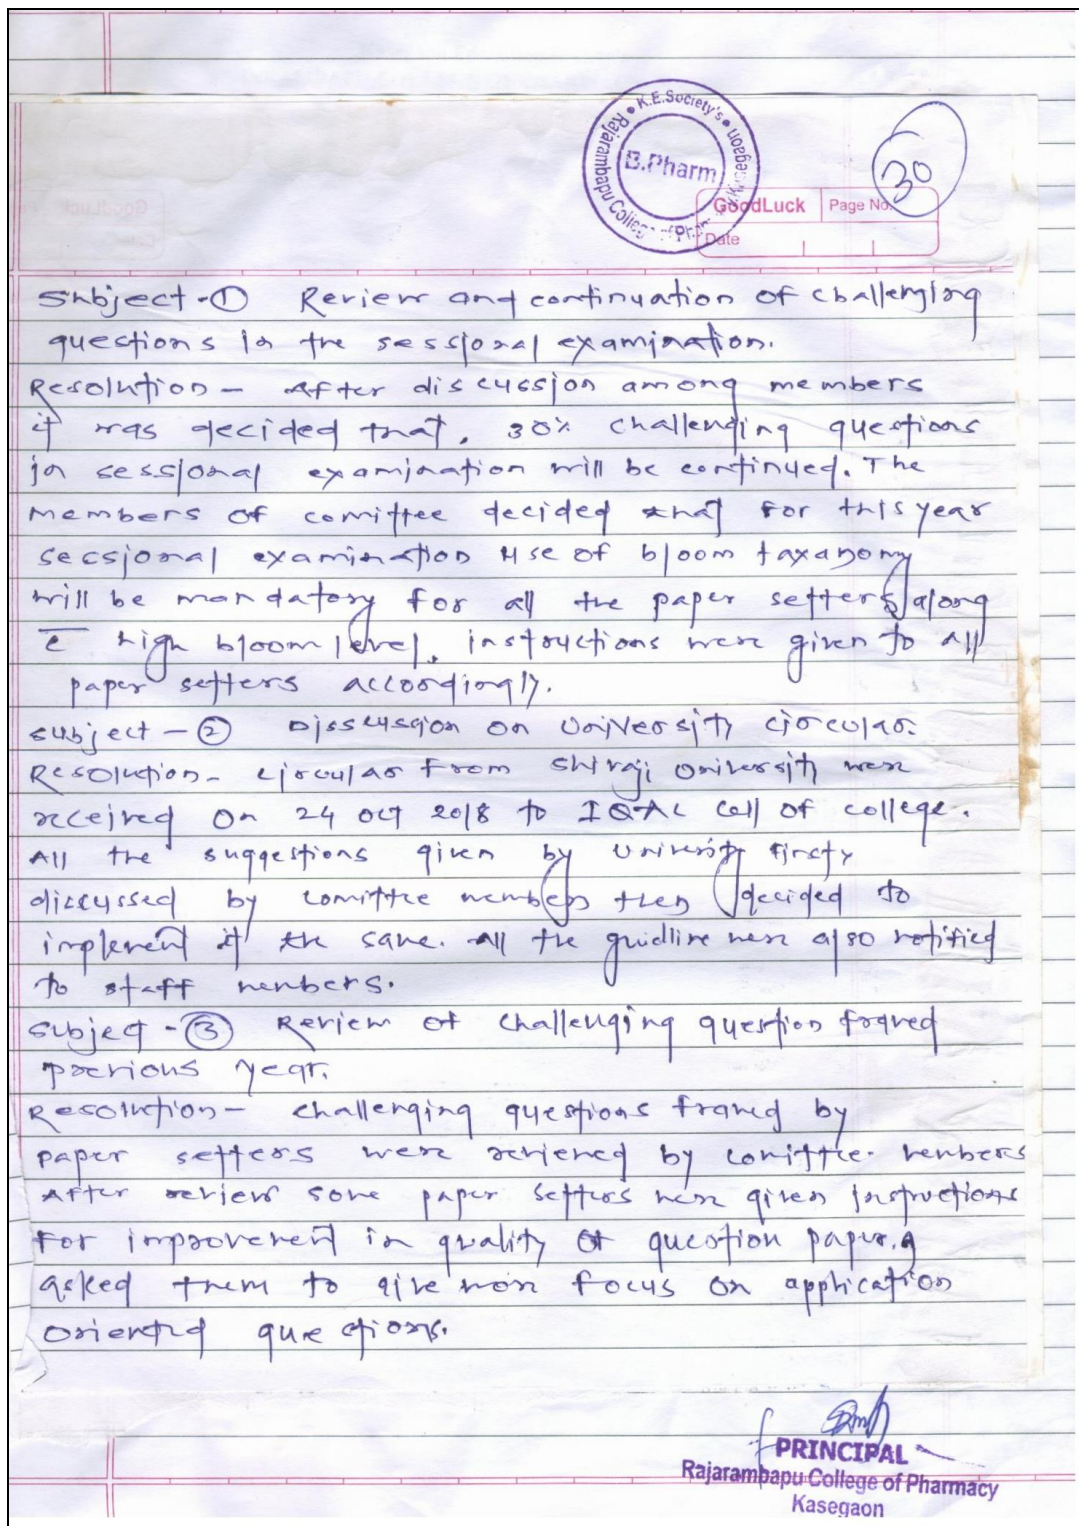 K.E.Society's
Rajarambapu College of Pharmacy, Kasegaon
B.Pharm
30
GoodLuck Page No.
Date
Subject - ① Review and continuation of challenging
questions in the sessional examination.
Resolution - After discussion among members
it was decided that, 30% challenging questions
in sessional examination will be continued. The
members of comittee decided that for this year
secsional examination use of bloom taxanomy
will be mandatory for all the paper setters along
c̅ high bloom level. instructions were given to all
paper setters accordingly.
subject - ② Disscussion on University circular.
Resolution - circular from Shivaji University were
received on 24 oct 2018 to IQAC cell of college.
All the suggestions given by University firsty
discussed by comittee members then decided to
implement it the same. All the guidline were also notified
to staff members.
subject - ③ Review of challenging question framed
previous year.
Resolution - challenging questions framed by
paper setters were reviewed by comittee members
After review some paper setters were given instructions
for improvement in quality of question paper,
asked them to give more focus on application
oriented questions.
PRINCIPAL
Rajarambapu College of Pharmacy
Kasegaon